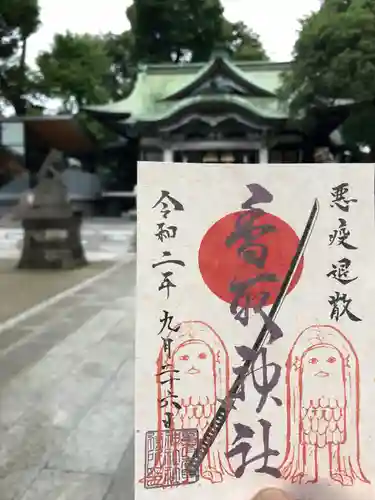 悪疫退散
香取神社
令和二年九月二十六日